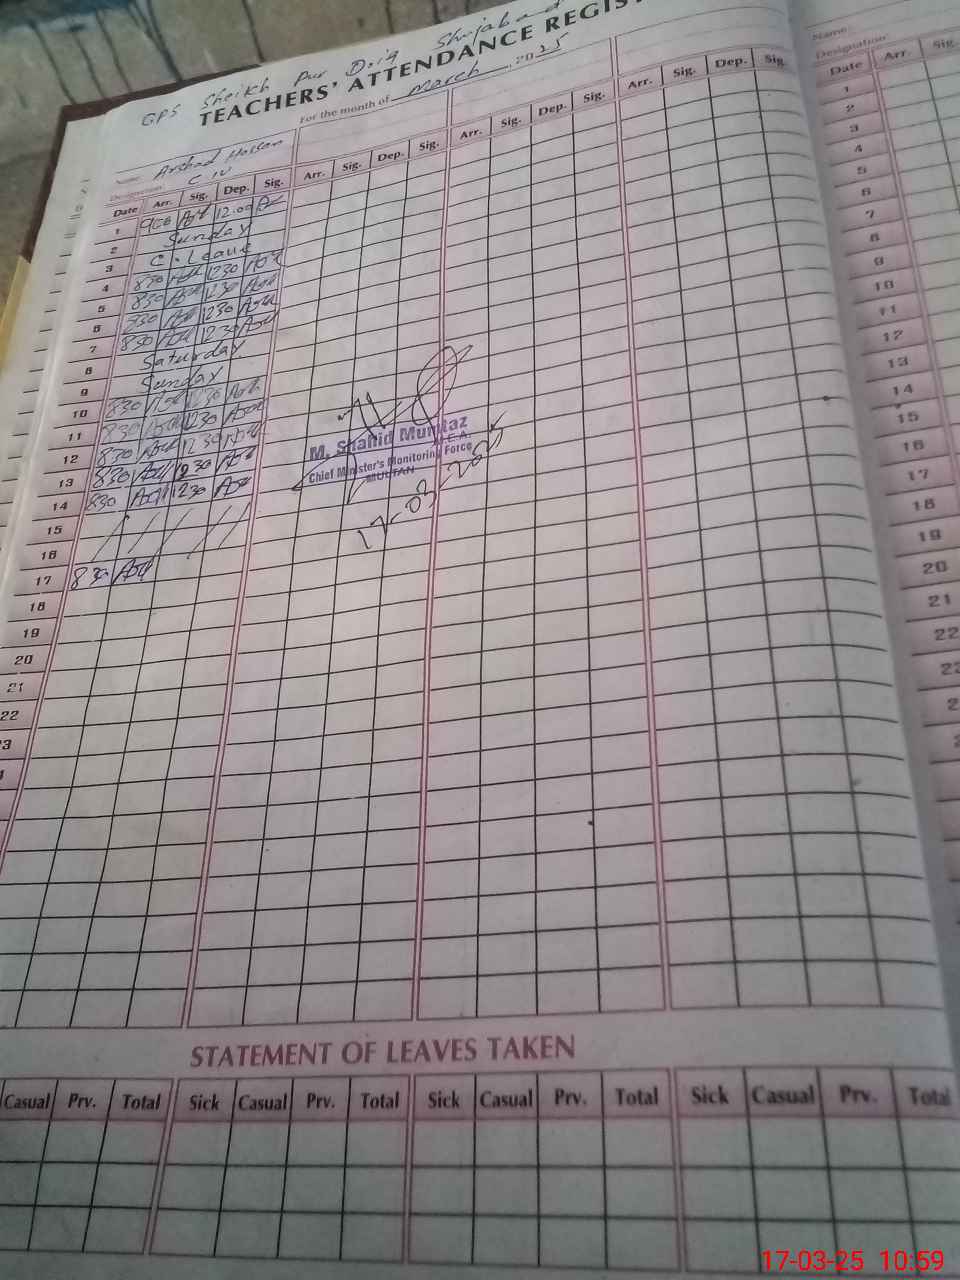 GPS Sheikh Pur Doiq Shujabad
TEACHERS' ATTENDANCE REGIST
For the month of March 2025
Name Arshad Hassan
Designation
Date Arr. Sig. Dep. Sig. Arr. Sig. Dep. Sig. Arr. Sig. Dep. Sig. Arr. Sig. Dep. Sig.
1 900 12.00
2 Sunday
3 C. Leave
4 830 1230
5 830 1230
6 830 1230
7 830 1230
8 Saturday
9 Sunday
10 830 1230
11 830 1230
12 830 1230
13 830 1230
14 830 1230
15
16
17 830
18
19
20
21
22
M. Shahid Mumtaz
M.E.A.
Chief Minister's Monitoring Force
MULTAN
17-03-2025
STATEMENT OF LEAVES TAKEN
Casual Prv. Total Sick Casual Prv. Total Sick Casual Prv. Total Sick Casual Prv. Total
Name:
Designation
Date Arr. Sig.
1
2
3
4
5
6
7
8
9
10
11
12
13
14
15
16
17
18
19
20
21
22
17-03-25 10:59